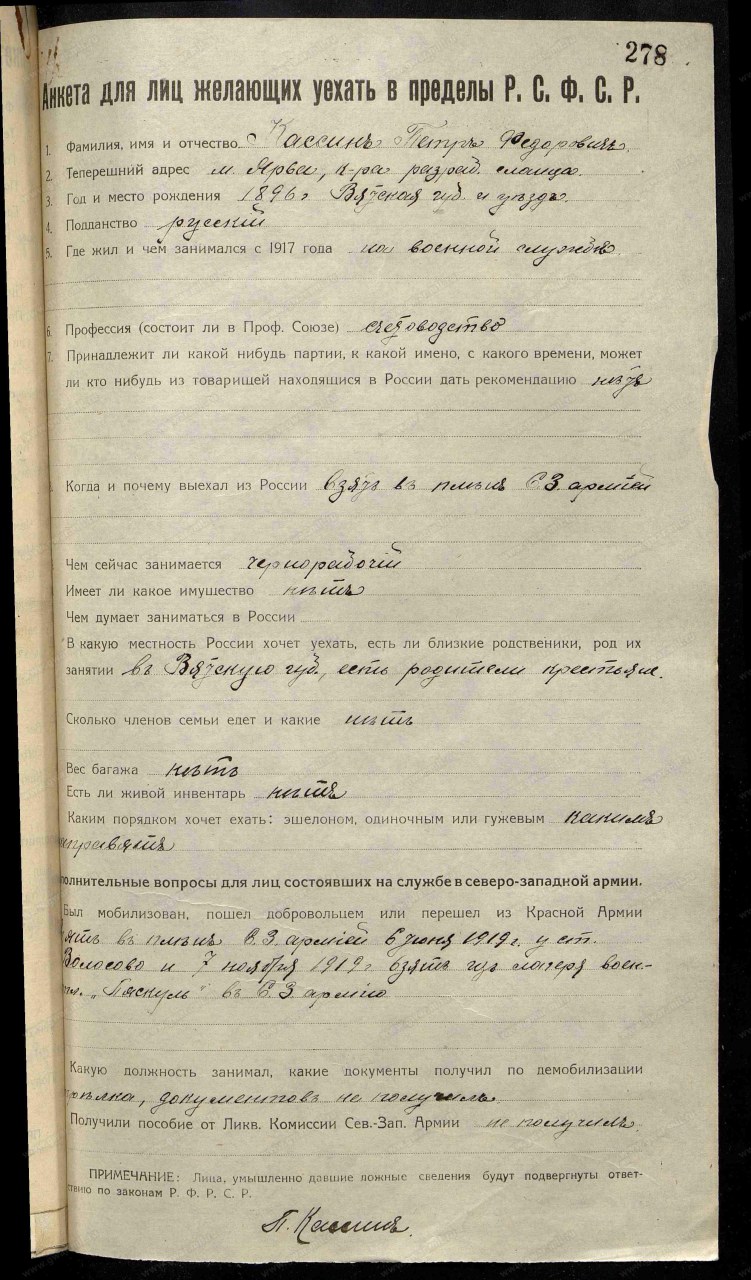 278
Анкета для лиц желающих уехать в пределы Р. С. Ф. С. Р.
1. Фамилия, имя и отчество Кассинъ Петръ Федоровичъ.
2. Теперешний адрес м. Ярва, к-ра разраб. сланца.
3. Год и место рождения 1896 г Вятская губ. и уездъ.
4. Подданство русскій
5. Где жил и чем занимался с 1917 года на военной службѣ
6. Профессия (состоит ли в Проф. Союзе) счетоводство
7. Принадлежит ли какой нибудь партии, к какой имено, с какого времени, может
ли кто нибудь из товарищей находящися в России дать рекомендацию нѣтъ
Когда и почему выехал из России взятъ въ плѣнъ С З. арміей
Чем сейчас занимается чернорабочій
Имеет ли какое имущество нѣтъ
Чем думает заниматься в России
В какую местность России хочет уехать, есть ли близкие родственики, род их
занятии въ Вятскую губ., есть родители крестьяне.
Сколько членов семьи едет и какие нѣтъ
Вес багажа нѣтъ
Есть ли живой инвентарь нѣтъ
Каким порядком хочет ехать: эшелоном, одиночным или гужевым какимъ
отправятъ
полнительные вопросы для лиц состоявших на службе в северо-западной армии.
Был мобилизован, пошел добровольцем или перешел из Красной Армии
Взятъ въ плѣнъ С. З. арміей 6 Іюня 1919 г. у ст.
Волосово и 7 ноября 1919 г взятъ изъ лагеря воен-
пл. „Пяскуль" въ С. З армію
Какую должность занимал, какие документы получил по демобилизации
стрѣлка, документовъ не получилъ
Получили пособие от Ликв. Комиссии Сев.-Зап. Армии не получилъ.
ПРИМЕЧАНИЕ: Лица, умышленно давшие ложные сведения будут подвергнуты ответ-
ствию по законам Р. Ф. Р. С. Р.
П. Кассинъ.